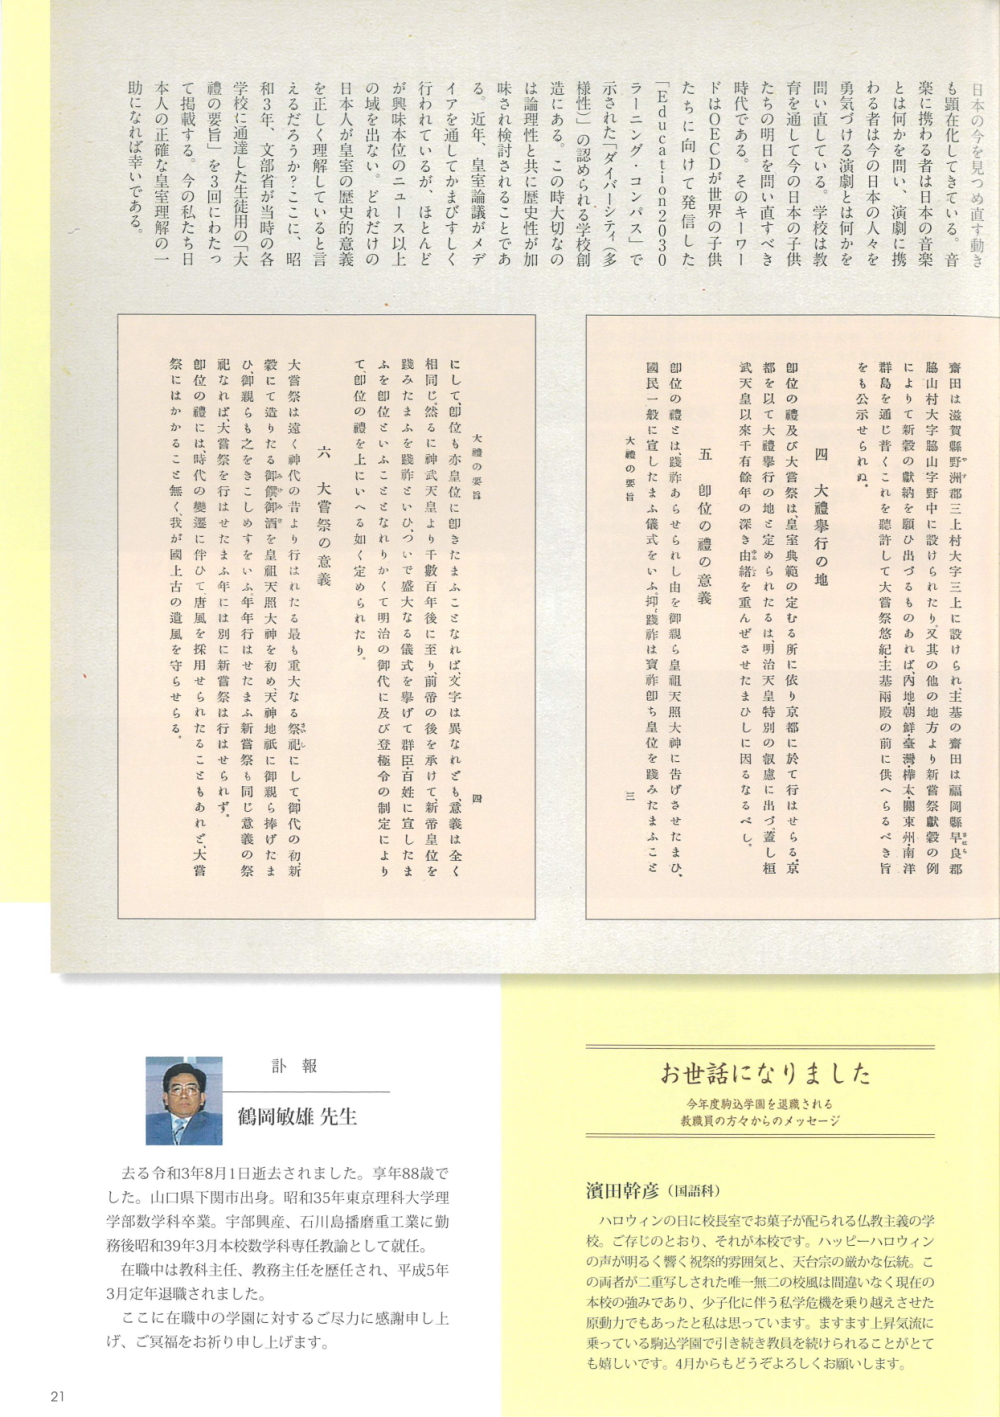 日本の今を見つめ直す動き
も顕在化してきている。音
楽に携わる者は日本の音楽
とは何かを問い、演劇に携
わる者は今の日本の人々を
勇気づける演劇とは何かを
問い直している。学校は教
育を通して今の日本の子供
たちの明日を問い直すべき
時代である。そのキーワー
ドはOECDが世界の子供
たちに向けて発信した
「Education2030
ラーニング・コンパス」で
示された「ダイバーシティ（多
様性）」の認められる学校創
造にある。この時大切なの
は論理性と共に歴史性が加
味され検討されることであ
る。近年、皇室論議がメデ
ィアを通してかまびすしく
行われているが、ほとんど
が興味本位のニュース以上
の域を出ない。どれだけの
日本人が皇室の歴史的意義
を正しく理解していると言
えるだろうか？ここに、昭
和3年、文部省が当時の各
学校に通達した生徒用の「大
禮の要旨」を3回にわたっ
て掲載する。今の私たち日
本人の正確な皇室理解の一
助になれば幸いである。
齋田は滋賀縣野洲郡三上村大字三上に設けられ、主基の齋田は福岡縣早良郡
脇山村大字脇山字野中に設けられたり。又其の他の地方より新嘗祭獻穀の例
によりて新穀の獻納を願ひ出づるものあれば、內地・朝鮮・臺灣・樺太・關東州・南洋
群島を通じ普くこれを聽許して大嘗祭悠紀・主基兩殿の前に供へらるべき旨
をも公示せられぬ。
四　大禮擧行の地
卽位の禮及び大嘗祭は、皇室典範の定むる所に依り京都に於て行はせらる。京
都を以て大禮擧行の地と定められたるは、明治天皇特別の叡慮に出づ。蓋し桓
武天皇以來千有餘年の深き由緖を重んぜさせたまひしに因るなるべし。
五　卽位の禮の意義
卽位の禮とは、踐祚あらせられし由を御親ら皇祖天照大神に告げさせたまひ、
國民一般に宣したまふ儀式をいふ。抑〻踐祚は寶祚卽ち皇位を踐みたまふこと
大禮の要旨
三
大禮の要旨
四
にして、卽位も亦皇位に卽きたまふことなれば、文字は異なれども、意義は全く
相同じ。然るに神武天皇より千數百年後に至り、前帝の後を承けて、新帝皇位を
踐みたまふを踐祚といひ、ついで盛大なる儀式を擧げて群臣・百姓に宣したま
ふを卽位といふこととなれり。かくて明治の御代に及び登極令の制定により
て、卽位の禮を上にいへる如く定められたり。
六　大嘗祭の意義
大嘗祭は遠く神代の昔より行はれたる最も重大なる祭祀にして、御代の初、新
穀にて造りたる御饌・御酒を皇祖天照大神を初め、天神地祇に御親ら捧げたま
ひ、御親らも之をきこしめすをいふ。年年行はせたまふ新嘗祭も同じ意義の祭
祀なれば、大嘗祭を行はせたまふ年には別に新嘗祭は行はせられず。
卽位の禮には、時代の變遷に伴ひて、唐風を採用せられたることもあれど、大嘗
祭にはかかること無く、我が國上古の遺風を守らせらる。
訃　報
鶴岡敏雄 先生
去る令和3年8月1日逝去されました。享年88歳で
した。山口県下関市出身。昭和35年東京理科大学理
学部数学科卒業。宇部興産、石川島播磨重工業に勤
務後昭和39年3月本校数学科専任教諭として就任。
在職中は教科主任、教務主任を歴任され、平成5年
3月定年退職されました。
ここに在職中の学園に対するご尽力に感謝申し上
げ、ご冥福をお祈り申し上げます。
お世話になりました
今年度駒込学園を退職される
教職員の方々からのメッセージ
濱田幹彦（国語科）
ハロウィンの日に校長室でお菓子が配られる仏教主義の学
校。ご存じのとおり、それが本校です。ハッピーハロウィン
の声が明るく響く祝祭的雰囲気と、天台宗の厳かな伝統。こ
の両者が二重写しされた唯一無二の校風は間違いなく現在の
本校の強みであり、少子化に伴う私学危機を乗り越えさせた
原動力でもあったと私は思っています。ますます上昇気流に
乗っている駒込学園で引き続き教員を続けられることがとて
も嬉しいです。4月からもどうぞよろしくお願いします。
21